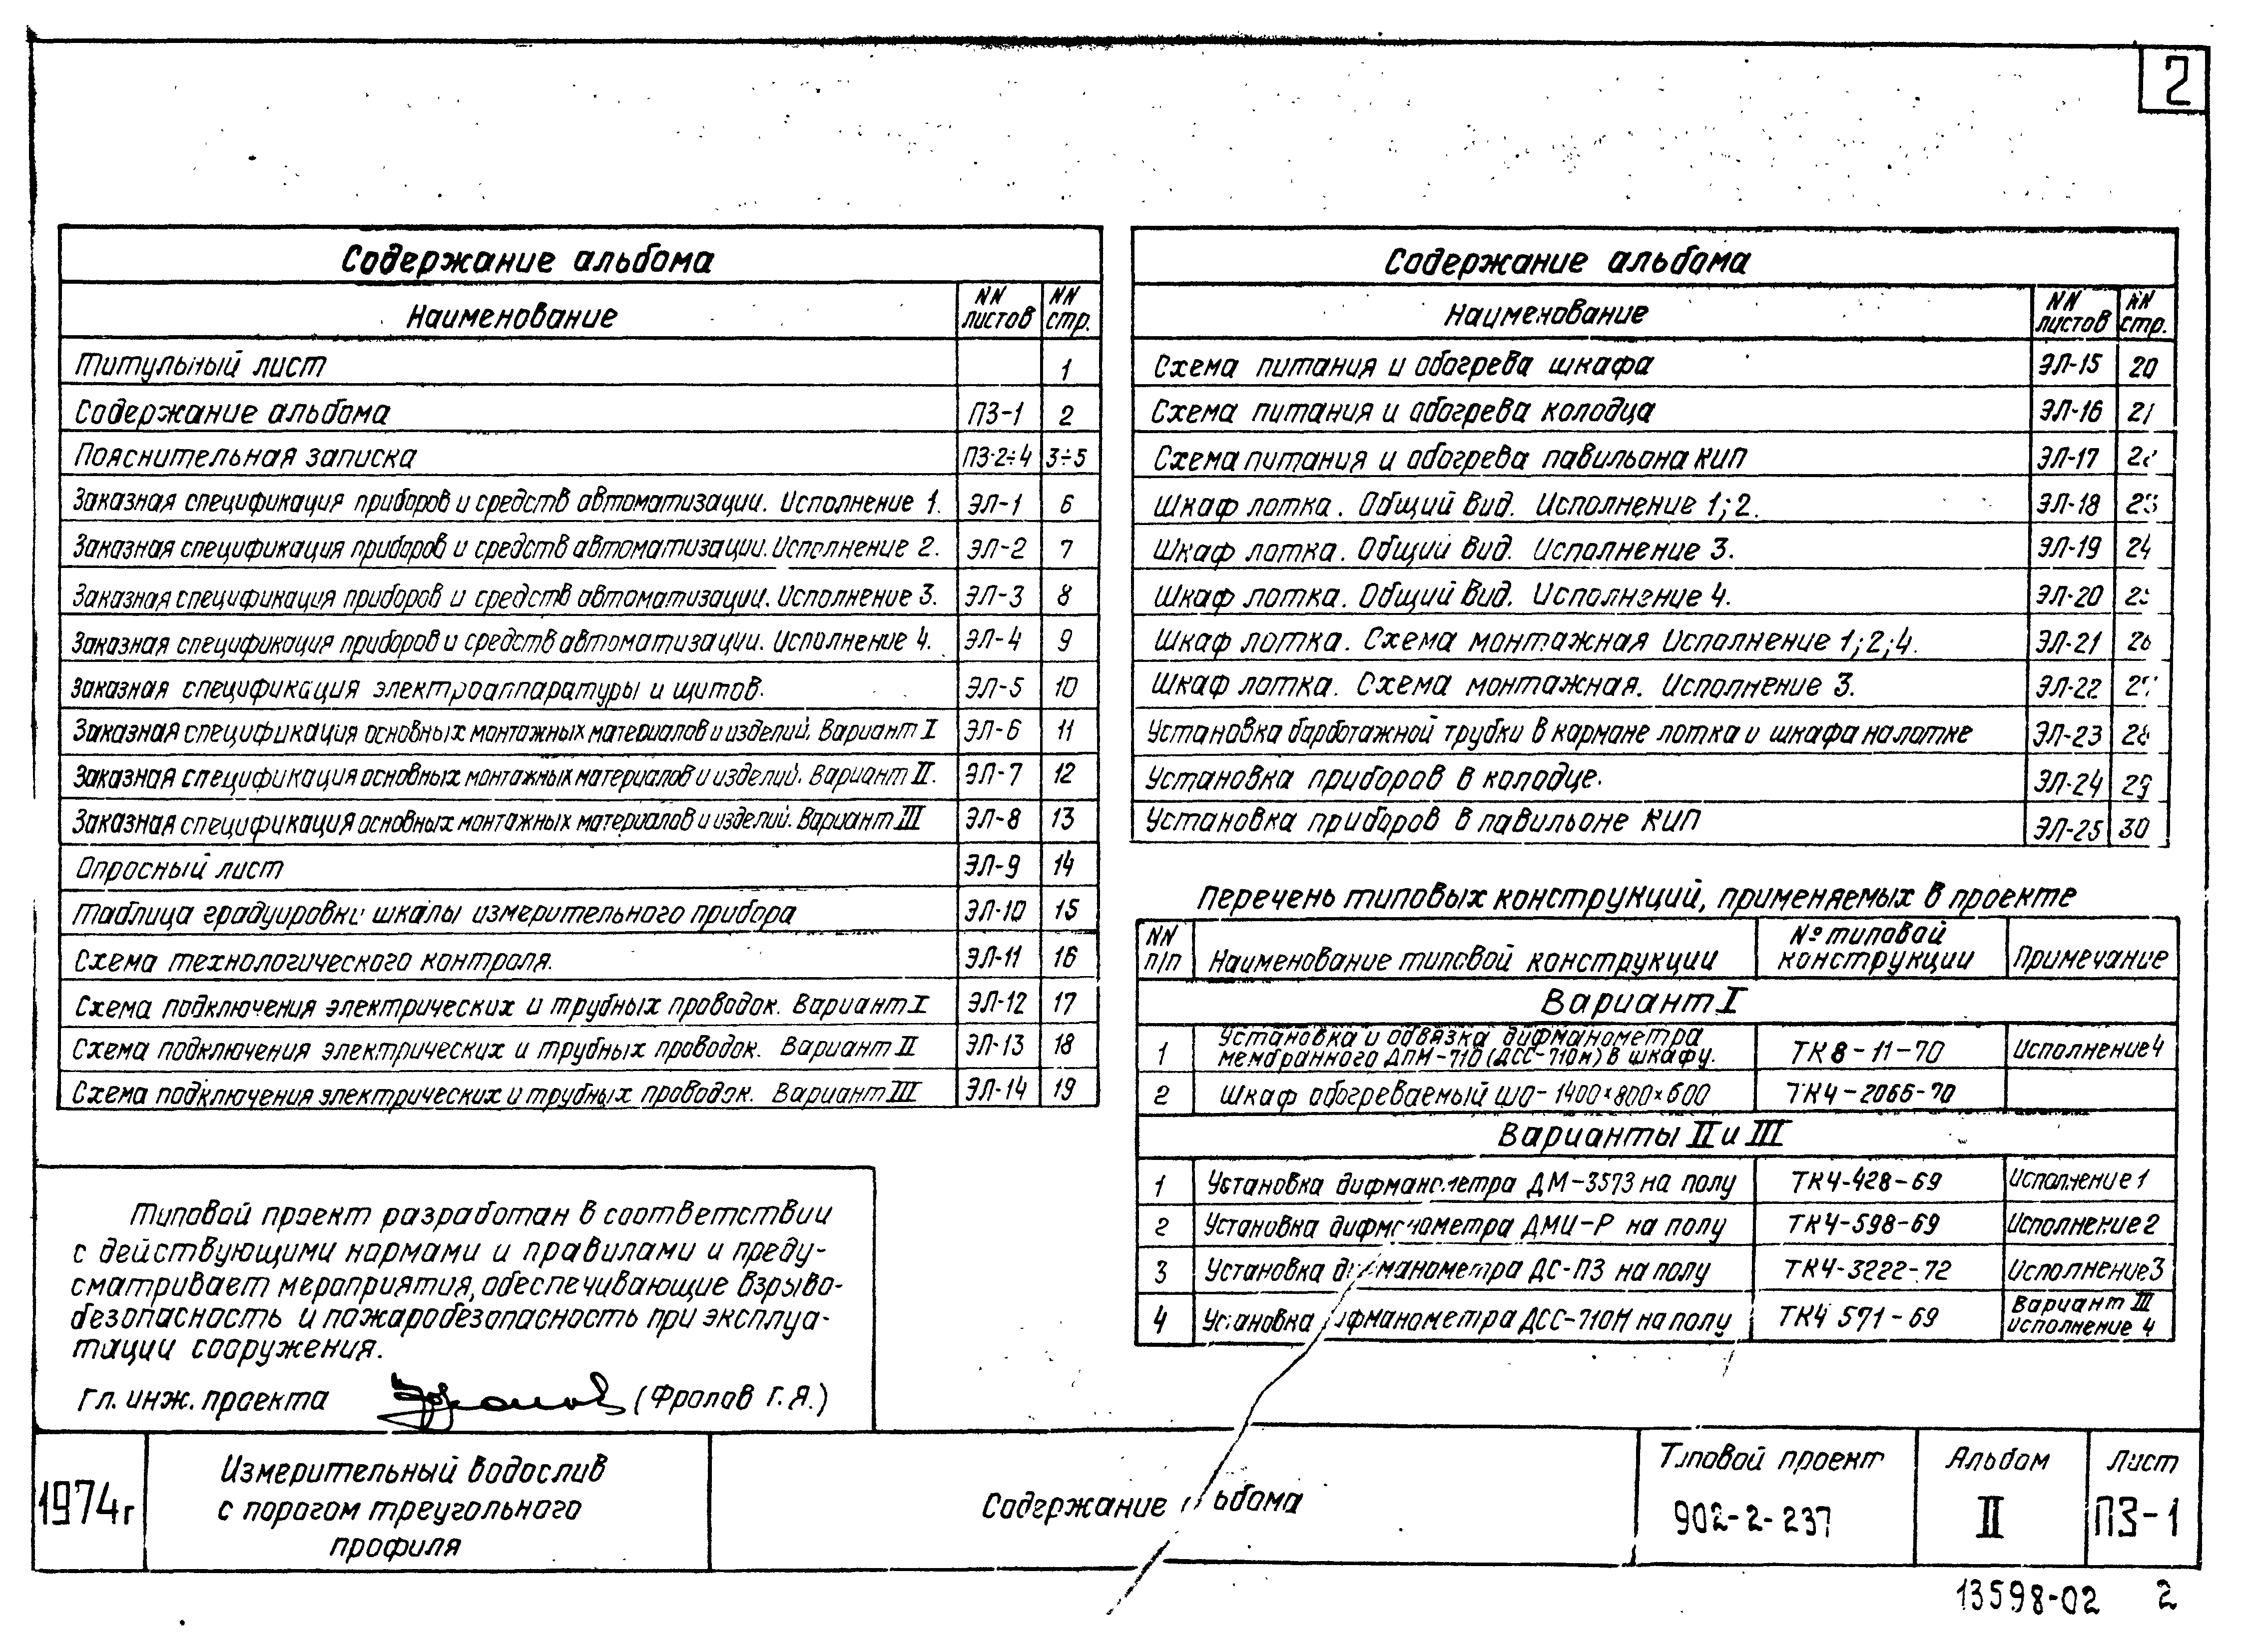 2
Содержание альбома
Наименование NN листов NN стр.
Титульный лист 1
Содержание альбома ПЗ-1 2
Пояснительная записка ПЗ-2÷4 3÷5
Заказная спецификация приборов и средств автоматизации. Исполнение 1. ЭЛ-1 6
Заказная спецификация приборов и средств автоматизации. Исполнение 2. ЭЛ-2 7
Заказная спецификация приборов и средств автоматизации. Исполнение 3. ЭЛ-3 8
Заказная спецификация приборов и средств автоматизации. Исполнение 4. ЭЛ-4 9
Заказная спецификация электроаппаратуры и щитов. ЭЛ-5 10
Заказная спецификация основных монтажных материалов и изделий. Вариант I ЭЛ-6 11
Заказная спецификация основных монтажных материалов и изделий. Вариант II. ЭЛ-7 12
Заказная спецификация основных монтажных материалов и изделий. Вариант III ЭЛ-8 13
Опросный лист ЭЛ-9 14
Таблица градуировки шкалы измерительного прибора ЭЛ-10 15
Схема технологического контроля. ЭЛ-11 16
Схема подключения электрических и трубных проводок. Вариант I ЭЛ-12 17
Схема подключения электрических и трубных проводок. Вариант II ЭЛ-13 18
Схема подключения электрических и трубных проводок. Вариант III ЭЛ-14 19
Содержание альбома
Наименование NN листов NN стр.
Схема питания и обогрева шкафа ЭЛ-15 20
Схема питания и обогрева колодца ЭЛ-16 21
Схема питания и обогрева павильона КИП ЭЛ-17
Шкаф лотка. Общий вид. Исполнение 1;2. ЭЛ-18 23
Шкаф лотка. Общий вид. Исполнение 3. ЭЛ-19 24
Шкаф лотка. Общий вид. Исполнение 4. ЭЛ-20 25
Шкаф лотка. Схема монтажная Исполнение 1;2;4. ЭЛ-21 26
Шкаф лотка. Схема монтажная. Исполнение 3. ЭЛ-22
Установка барботажной трубки в кармане лотка и шкафа на лотке ЭЛ-23 28
Установка приборов в колодце. ЭЛ-24 29
Установка приборов в павильоне КИП ЭЛ-25 30
Перечень типовых конструкций, применяемых в проекте
NN п/п Наименование типовой конструкции № типовой конструкции Примечание
Вариант I
1 Установка и обвязка дифманометра мембранного ДПМ-710 (ДСС-710н) в шкафу. ТК8-11-70 Исполнение 4
2 Шкаф обогреваемый ШО-1400×800×600 ТК4-2066-70
Варианты II и III
1 Установка дифманометра ДМ-3573 на полу ТК4-428-69 Исполнение 1
2 Установка дифманометра ДМИ-Р на полу ТК4-598-69 Исполнение 2
3 Установка дифманометра ДС-П3 на полу ТК4-3222-72 Исполнение 3
4 Установка дифманометра ДСС-710Н на полу ТК4 571-69 Вариант III исполнение 4
Типовой проект разработан в соответствии
с действующими нормами и правилами и преду-
сматривает мероприятия, обеспечивающие взрыво-
безопасность и пожаробезопасность при эксплуа-
тации сооружения.
Гл. инж. проекта (Фролов Г.Я.)
1974г
Измерительный водослив
с порогом треугольного
профиля
Содержание альбома
Типовой проект
902-2-237
Альбом
II
Лист
ПЗ-1
13598-02 2